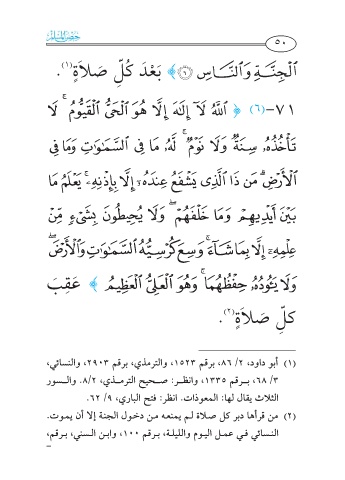 ٥٠ حصن المسلم
ٱلْجِنَّةِ وَٱلنَّاسِ ۝٦ ﴾ بَعْدَ كُلِّ صَلاَةٍ(١).
٧١-(٦) ﴿ ٱللَّهُ لَآ إِلَٰهَ إِلَّا هُوَ ٱلْحَىُّ ٱلْقَيُّومُ ۚ لَا
تَأْخُذُهُۥ سِنَةٌ وَلَا نَوْمٌ ۚ لَّهُۥ مَا فِى ٱلسَّمَٰوَٰتِ وَمَا فِى
ٱلْأَرْضِ ۗ مَن ذَا ٱلَّذِى يَشْفَعُ عِندَهُۥٓ إِلَّا بِإِذْنِهِۦ ۚ يَعْلَمُ مَا
بَيْنَ أَيْدِيهِمْ وَمَا خَلْفَهُمْ ۖ وَلَا يُحِيطُونَ بِشَىْءٍ مِّنْ
عِلْمِهِۦٓ إِلَّا بِمَا شَآءَ ۚ وَسِعَ كُرْسِيُّهُ ٱلسَّمَٰوَٰتِ وَٱلْأَرْضَ ۖ
وَلَا يَـُٔودُهُۥ حِفْظُهُمَا ۚ وَهُوَ ٱلْعَلِىُّ ٱلْعَظِيمُ ﴾ عَقِبَ
كلِّ صَلاَةٍ(٢).
(١) أبو داود، ٢/ ٨٦، برقم ١٥٢٣، والترمذي، برقم ٢٩٠٣، والنسائي،
٣/ ٦٨، برقم ١٣٣٥، وانظر: صحيح الترمذي، ٨/٢. والسور
الثلاث يقال لها: المعوذات. انظر: فتح الباري، ٩/ ٦٢.
(٢) من قرأها دبر كل صلاة لم يمنعه من دخول الجنة إلا أن يموت.
النسائي في عمل اليوم والليلة، برقم ١٠٠، وابن السني، برقم،